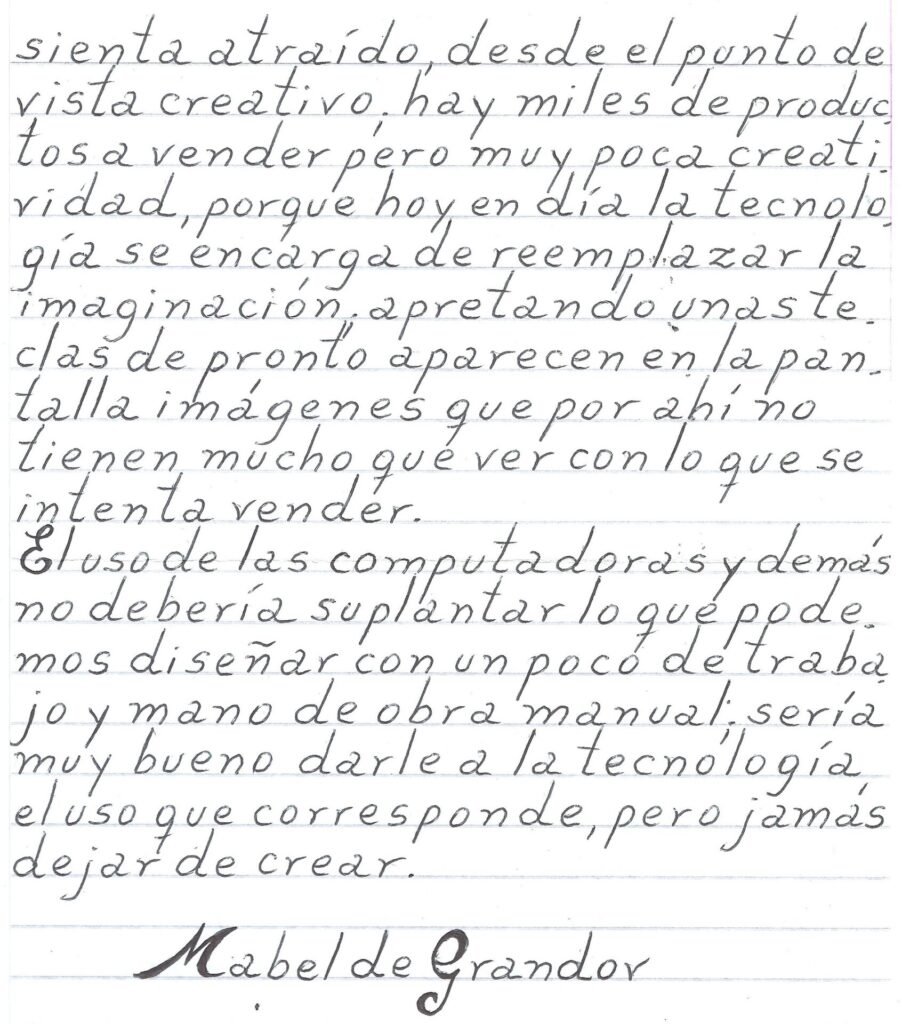 sienta atraído, desde el punto de
vista creativo; hay miles de produc-
tos a vender pero muy poca creati-
vidad, porque hoy en día la tecnolo-
gía se encarga de reemplazar la
imaginación; apretando unas te-
clas de pronto aparecen en la pan-
talla imágenes que por ahí no
tienen mucho que ver con lo que se
intenta vender.
El uso de las computadoras y demás
no debería suplantar lo que pode-
mos diseñar con un poco de traba-
jo y mano de obra manual; sería
muy bueno darle a la tecnología
el uso que corresponde, pero jamás
dejar de crear.
Mabel de Grandov